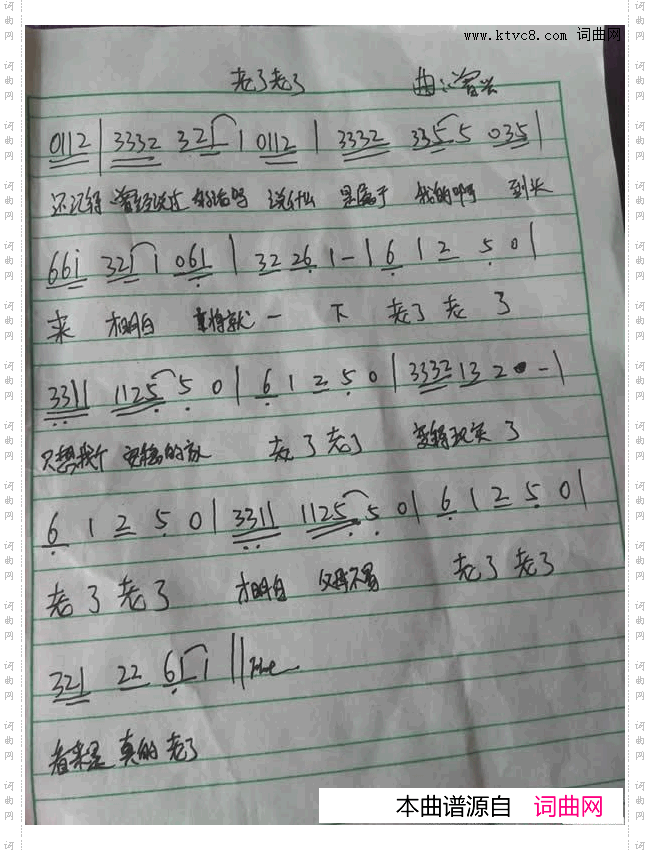 www.ktvc8.com 词曲网
老了老了 曲:曾兴
0112 | 3332 321 1 0112 | 3332 335 5 035 |
还记得 曾经说过 的话吗 说什么 是属于 我的啊 到头
661 321 1 061 | 32 26 1 - | 6 1 2 5 0 |
来 才明白 一 下 老了老 了
3311 1125 5 0 | 6 1 2 5 0 | 3332 13 2 - |
只想找个 老了老了 变得现实 了
6 1 2 5 0 | 3311 1125 5 0 | 6 1 2 5 0 |
老了老了 才明白 父母不易 老了老了
321 22 6 1 1 ||
看来是 真的 老了
本曲谱源自 词曲网